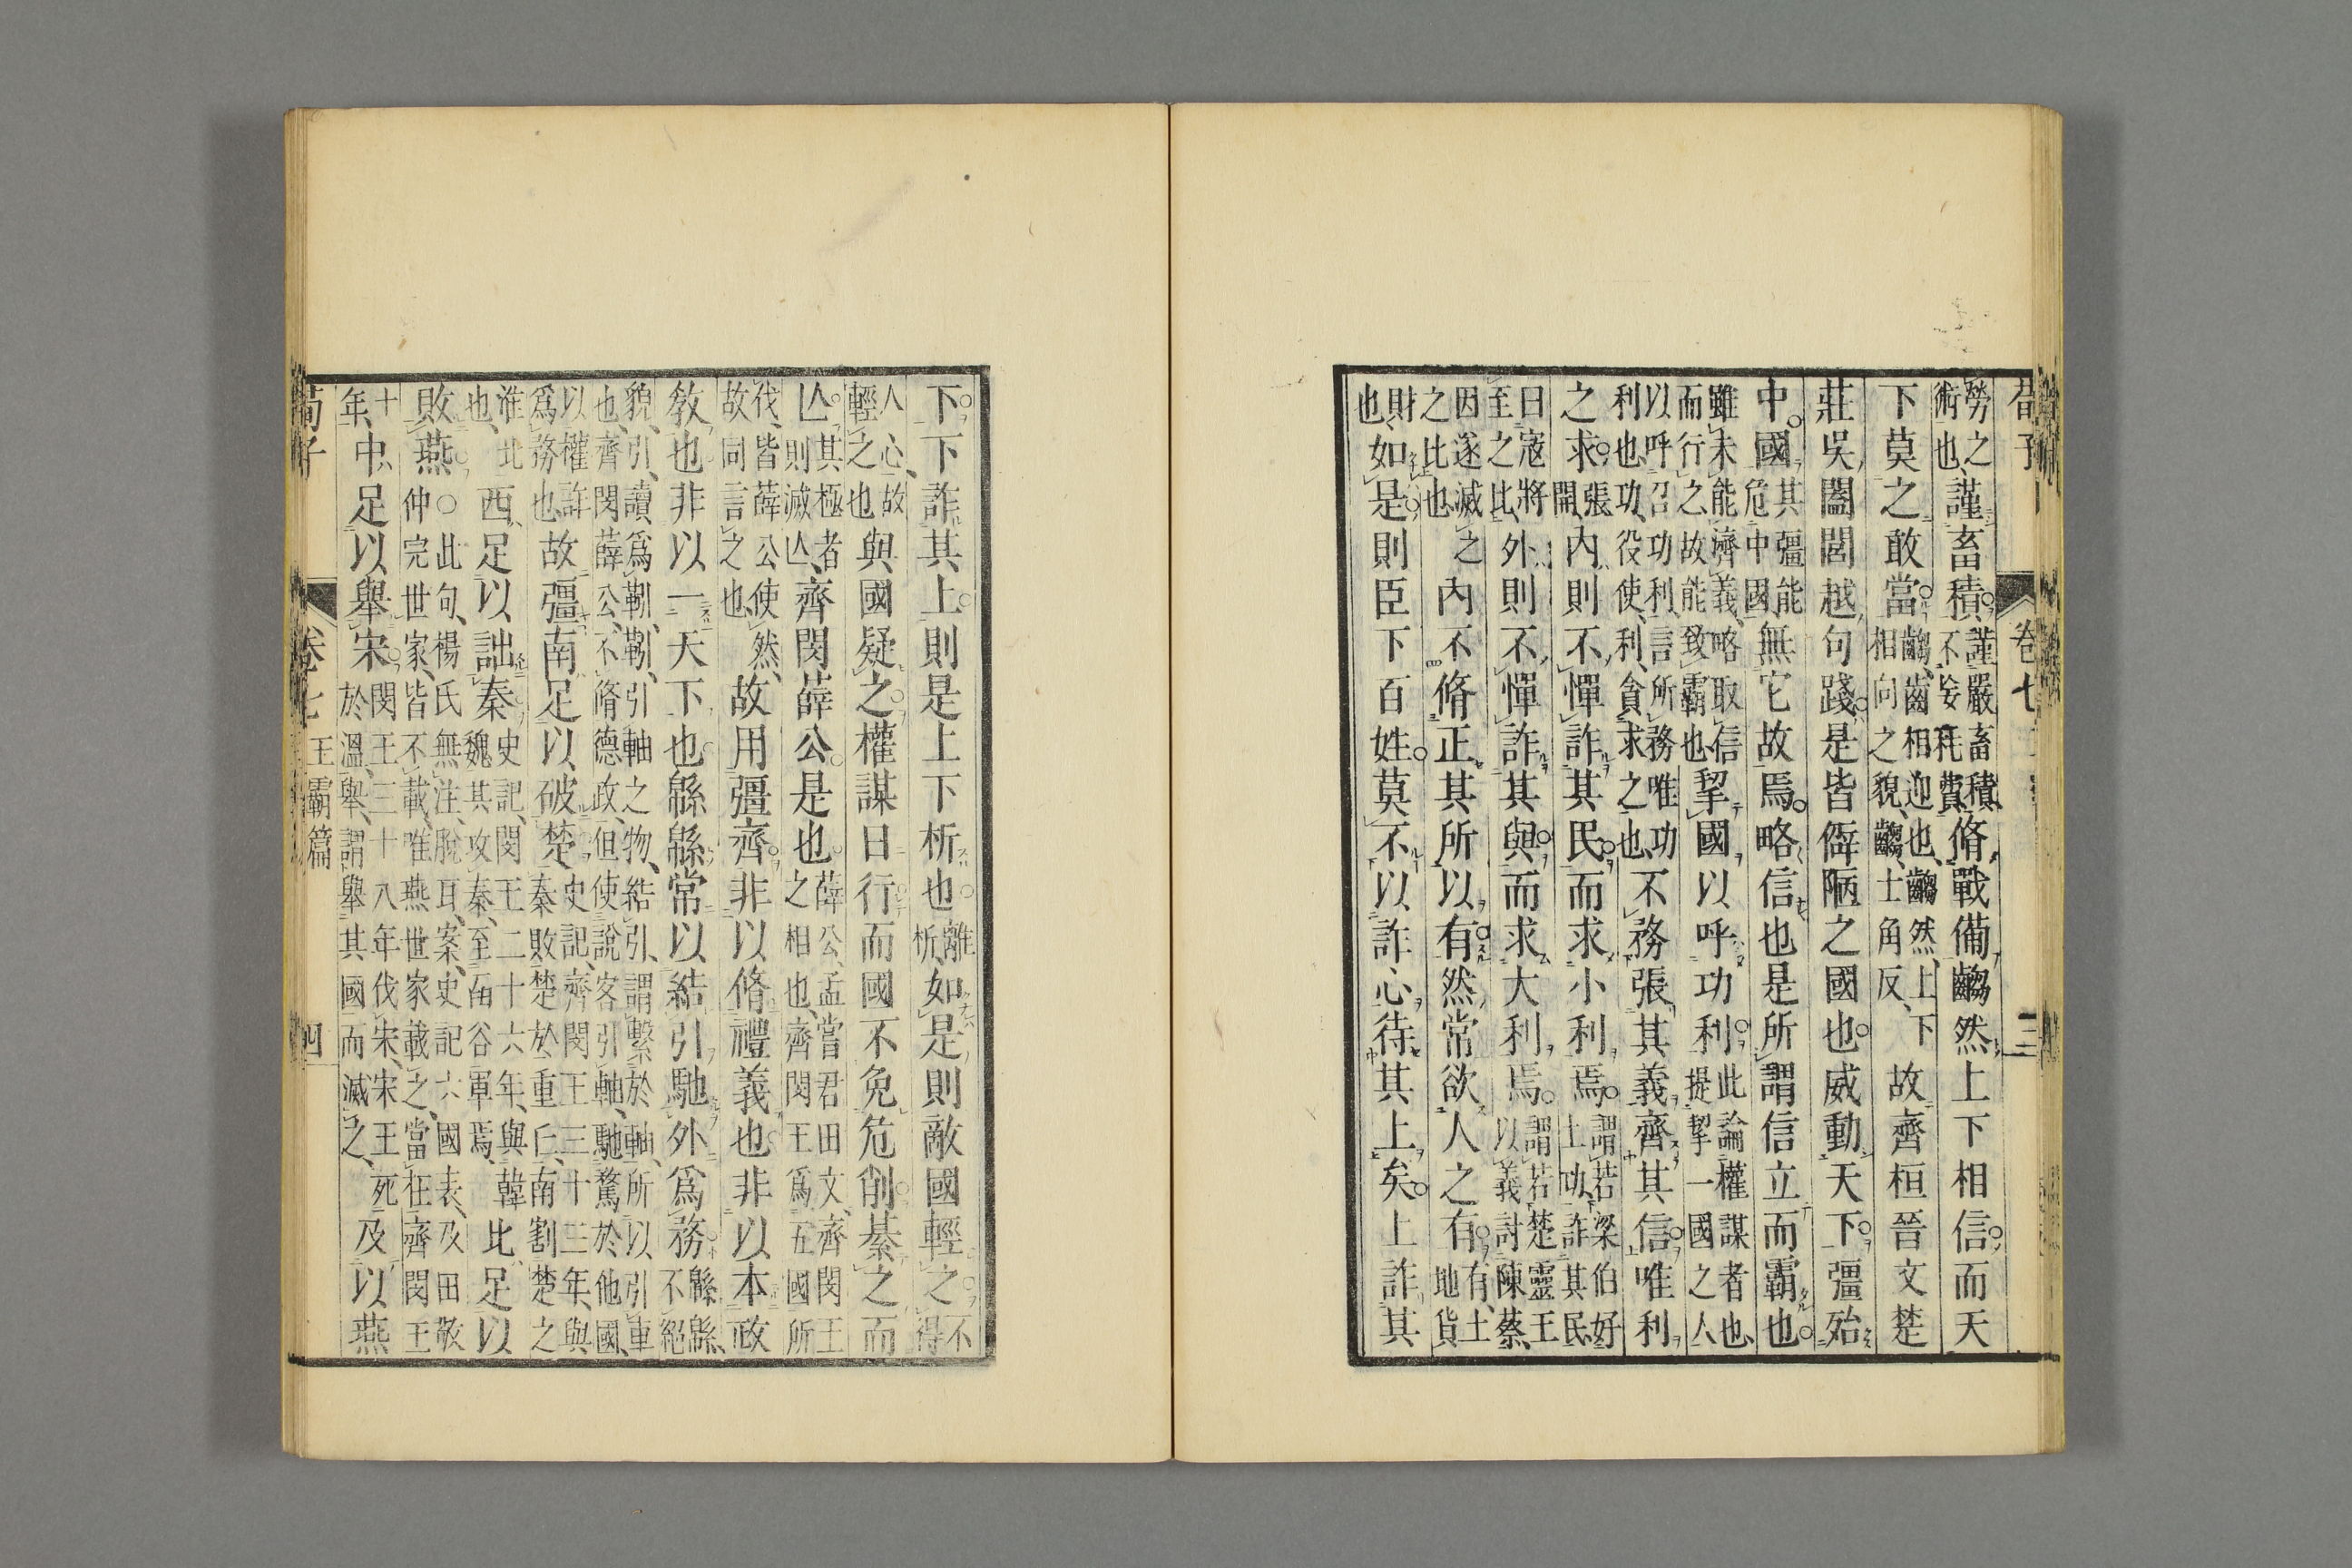 荀子 卷七 三
勞之術也、謹畜積、謹嚴畜積、不妄耗費、脩戰備齺然上下相信而天
下莫之敢當齺、齒相迎也、齺然、上下相向之貌、齺、士角反、故齊桓晉文楚
莊吳闔閭越句踐是皆僻陋之國也威動天下彊殆
中國其彊能危中國無它故焉略信也是所謂信立而霸也
雖未能濟義、略取信而行之、故能致霸也挈國以呼功利此論權謀者也、提挈一國之人
以呼召功利、言所務唯功利也、功、役使、利、貪求之也、不務張其義齊其信唯利
之求張、開、內則不憚詐其民而求小利焉謂若梁伯好土功、詐其民
曰寇將至之比、外則不憚詐其與而求大利焉謂若楚靈王以義討陳蔡、
因遂滅之之比也內不脩正其所以有然常欲人之有有、土地貨
財也、如是則臣下百姓莫不以詐心待其上矣上詐其
下下詐其上則是上下析也離析、如是則敵國輕之不得
人心、故輕之也與國疑之權謀日行而國不免危削綦之而
亾其極者則滅亾、齊閔薛公是也薛公、孟嘗君田文、齊閔王之相也、齊閔王爲五國所
伐、皆薛公使然、故同言之也、故用彊齊非以脩禮義也非以本政
敎也非以一天下也緜緜常以結引馳外爲務緜緜、不絕
貌、引、讀爲靷、靷、引軸之物、結引、謂繫於軸、所以引車也、齊閔薛公、不脩德政、但使說客引軸、馳騖於他國、
以權詐爲務也、故彊南足以破楚史記、齊閔王二十三年、與秦敗楚於重丘、南割楚之
淮北也、西足以詘秦史記、閔王二十六年、與韓魏其攻秦、至函谷軍焉、北足以
敗燕○此句、楊氏無注、脫耳、案、史記六國表、及田敬仲完世家、皆不載、唯燕世家載之、當在齊閔王
十年、中足以舉宋閔王三十八年伐宋、宋王死於溫、舉、謂舉其國而滅之、及以燕
荀子 卷七 王霸篇 四